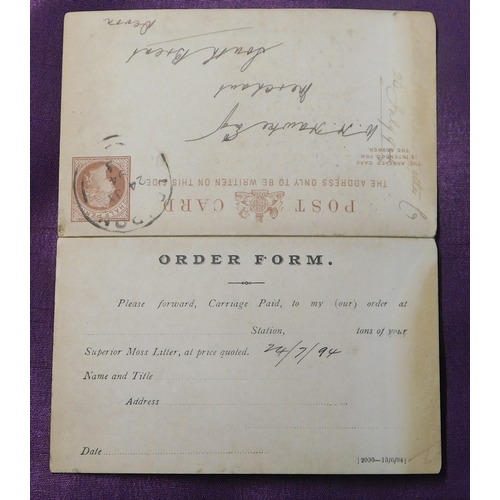 POST CARD
THE ADDRESS ONLY TO BE WRITTEN ON THIS SIDE.
THE ANNEXED CARD
IS INTENDED FOR
THE ANSWER
W. H. Hawke Esq
Merchant
South Brent
Devon
ORDER FORM.
Please forward, Carriage Paid, to my (our) order at
Station, tons of your
Superior Moss Litter, at price quoted. 24/7/94
Name and Title
Address
Date
2000—13/6/94